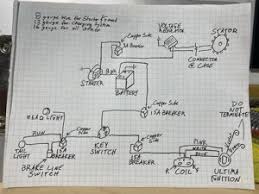 gauge Wire for Starter & Ground
gauge for Charging System
16 gauge for all others
Copper Side
VOLTAGE
REGULATOR
STATOR
BREAKER
CONNECTOR
@ CASE
STARTER
BATTERY
Copper Side
HEAD LIGHT
15A BREAKER
DO NOT
TERMINATE
RUN
Copper Side
TAIL
LIGHT
15A
BREAKER
KEY
SWITCH
15A
BREAKER
BRAKE LINE
SWITCH
COIL
ULTIMA
IGNITION